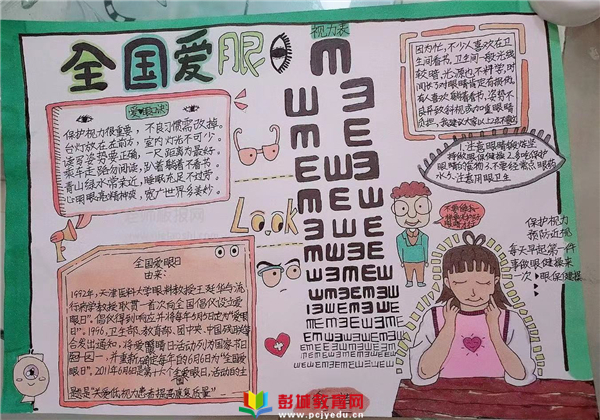 全国爱眼
视力表
爱眼诀
保护视力很重要，不良习惯需改掉。
台灯放在左前方，室内灯光不可少。
读写姿势要正确，不近距离为最好。
乘车走路勿阅读，趴着躺着不看书。
青山绿水常亲近，睡眠充足不过劳。
心明眼亮精神爽，宽广世界多美妙。
Look
全国爱眼日
由来：
1992年，天津医科大学眼科教授王延华与流
行病学教授耿贯一首次向全国倡仪设立爱
眼日"，倡仪得到响应并将每年5月5日定为"爱眼
日"。1996，卫生部、教育部、团中央、中国残联等
会发出通知，将爱眼日活动列为国家节日
之一，并重新确定每年的6月6日为"全国爱
眼日"。2011年6月6日是第十六个全爱眼日，活动的主
题是"关爱低视力患者提高康复质量"
因为忙，不少人喜欢在卫
生间看书，卫生间一般光线
较暗，光源也不科学，时
间长了对眼睛肯定有损伤。
有人喜欢躺着看书，姿势不
良并致斜视或加重眼睛
负担，我建议大家以上办不
1.注意眼睛锻炼坚
持做眼保健操2.多吃保护
眼睛的食物3.不要经常点眼药
水4.注意用眼卫生
保护视力
预防近视
每天早起第一件
事做眼健操来
一次 眼保健操
彭城教育网
www.pcjyedu.cn